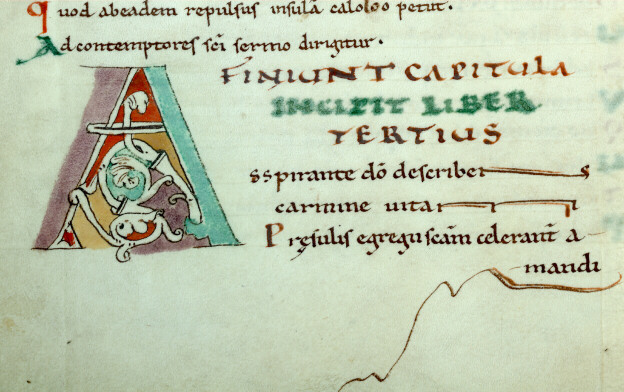 quod abeadem repulsus insulā caloloo petit.
Ad contemptores sc̄i sermo dirigitur.
A FINIUNT CAPITULA
INCIPIT LIBER
TERTIUS
sspirante dō describe s
carmine uita
Presulis egregii scām celerant̄ a-
mandi